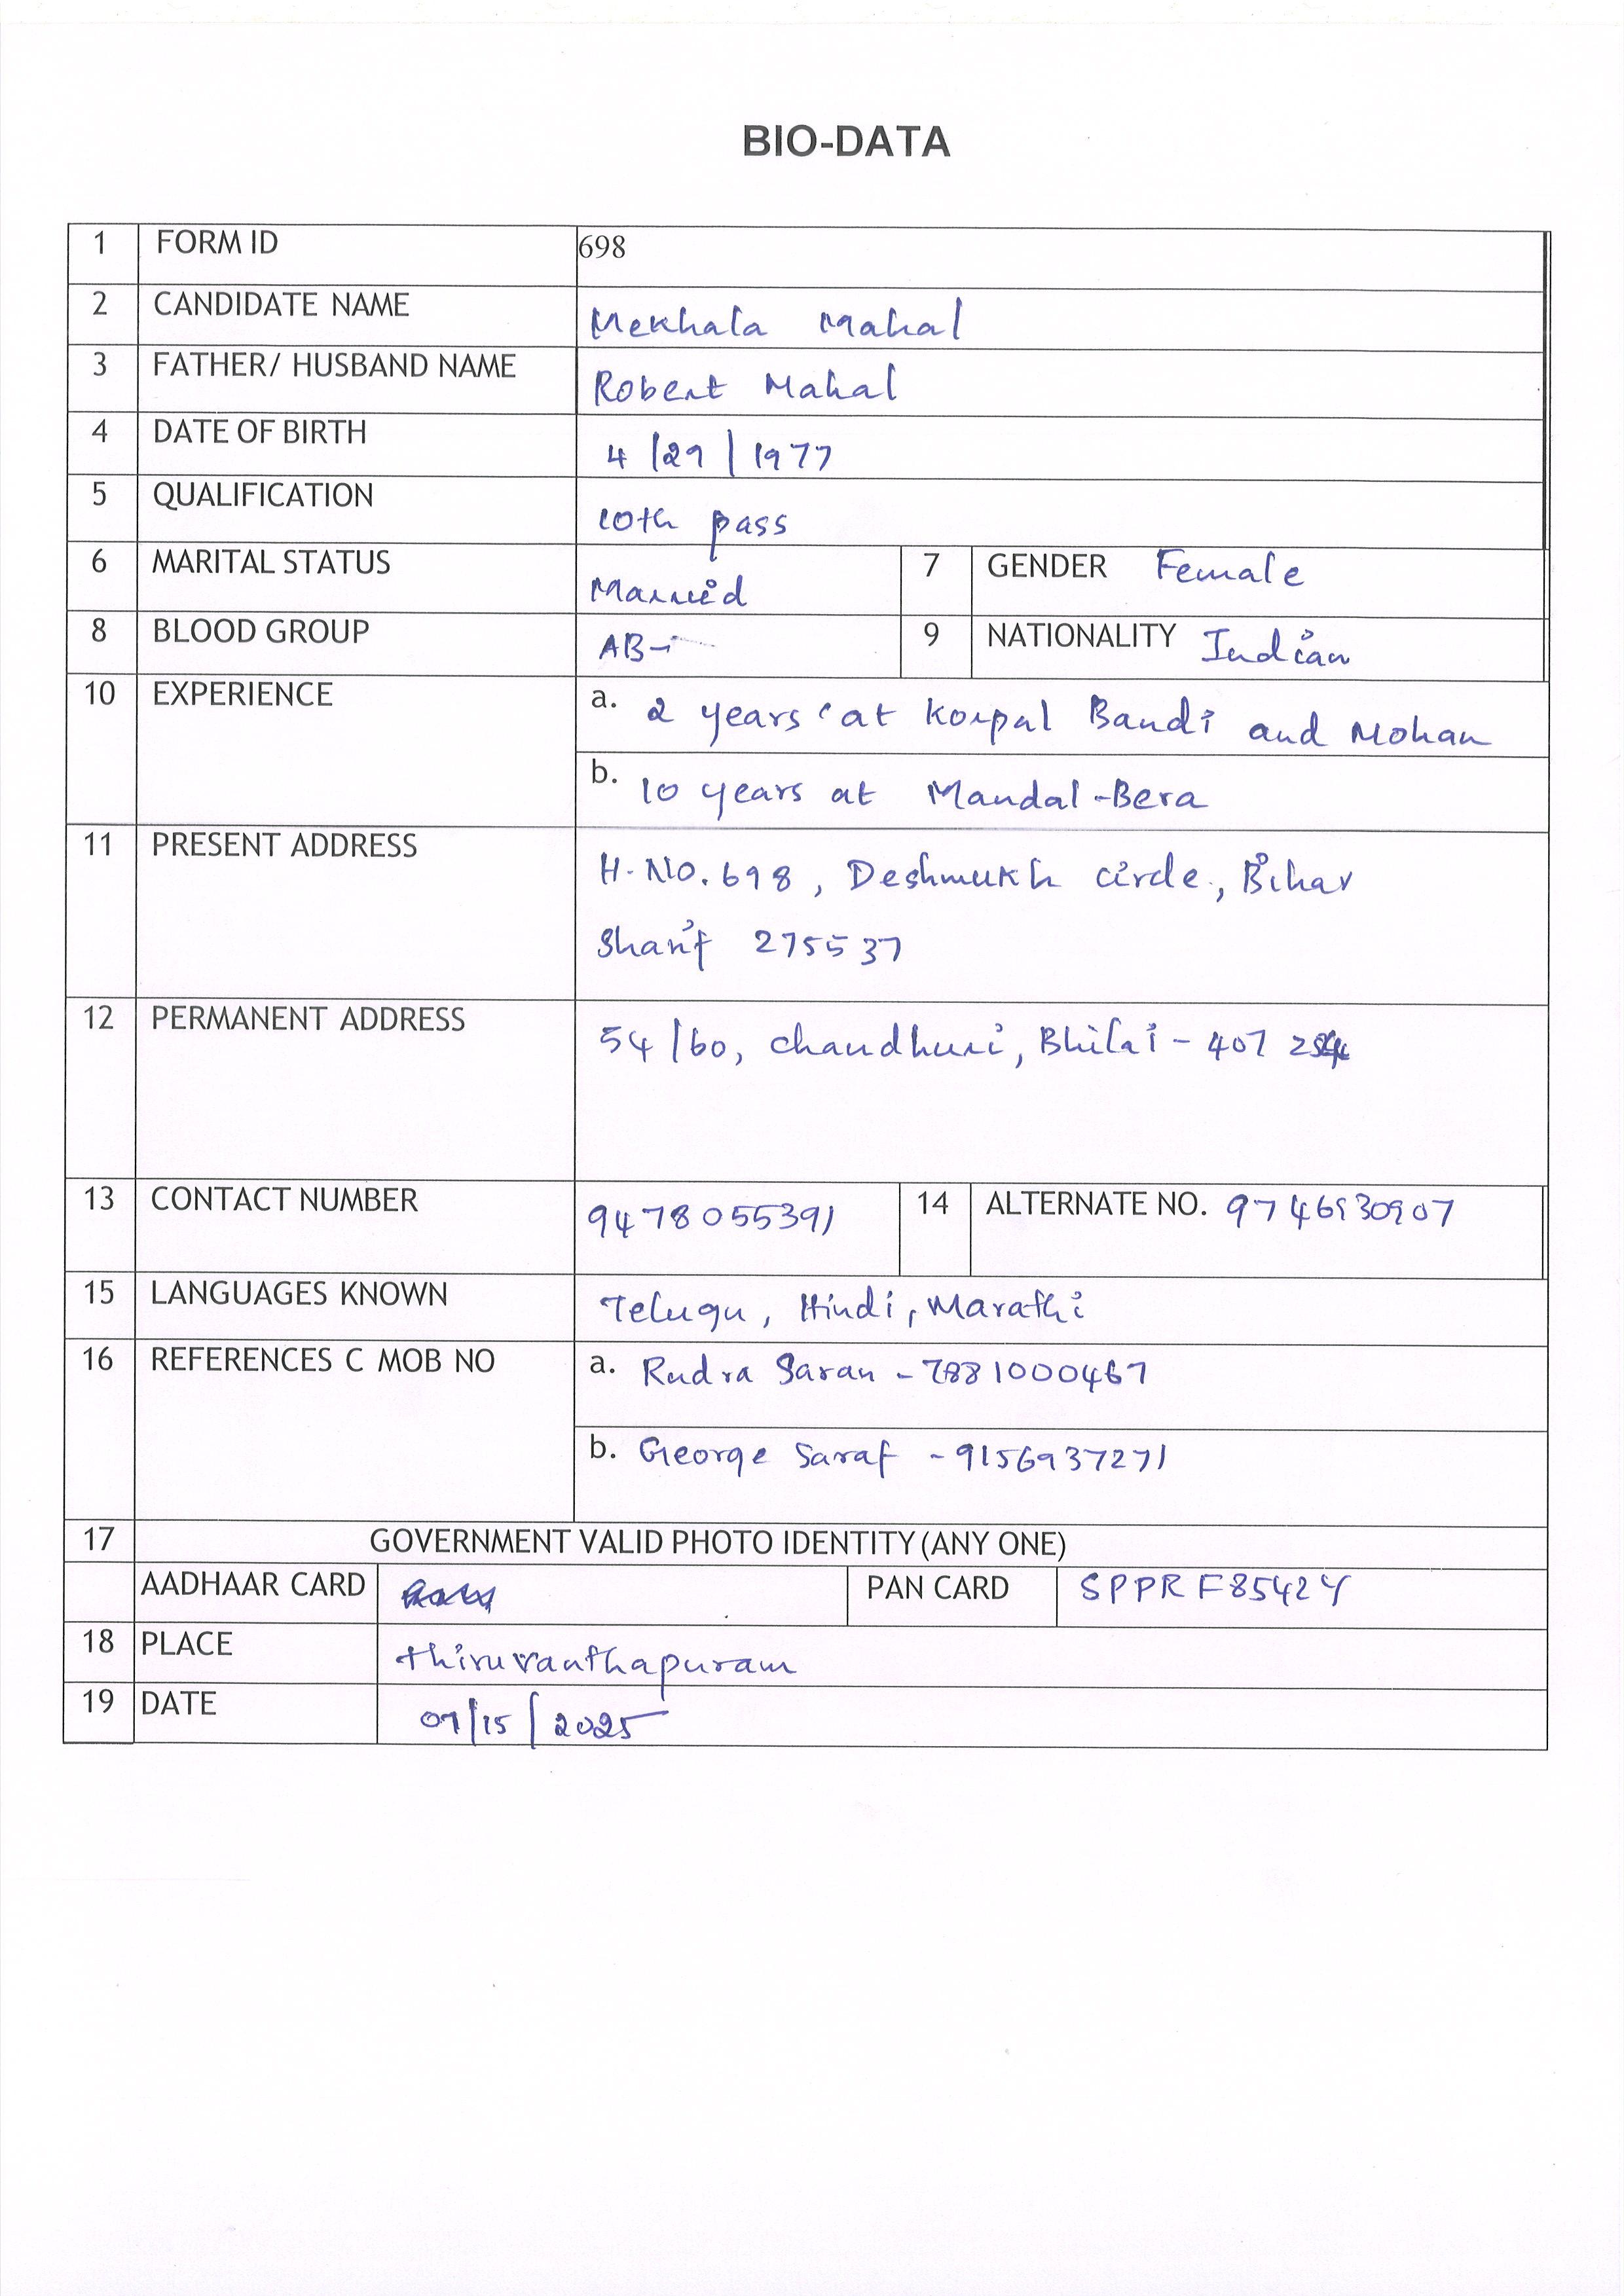 BIO-DATA
1 FORM ID 698
2 CANDIDATE NAME Mekhala Mahal
3 FATHER/ HUSBAND NAME Robert Mahal
4 DATE OF BIRTH 4/29/1977
5 QUALIFICATION 10th pass
6 MARITAL STATUS Married 7 GENDER Female
8 BLOOD GROUP AB- 9 NATIONALITY Indian
10 EXPERIENCE a. 2 years at Korpal Bandi and Mohan
b. 10 years at Mandal-Bera
11 PRESENT ADDRESS H.NO.698, Deshmukh circle, Bihar
Sharif 275537
12 PERMANENT ADDRESS 54/60, chaudhuri, Bhilai - 407
13 CONTACT NUMBER 9478055391 14 ALTERNATE NO. 9746930907
15 LANGUAGES KNOWN Telugu, Hindi, Marathi
16 REFERENCES C MOB NO a. Rudra Saran - 7881000467
b. George Saraf - 9156937271
17 GOVERNMENT VALID PHOTO IDENTITY (ANY ONE)
AADHAAR CARD PAN CARD SPPRF8542Y
18 PLACE thiruvanthapuram
19 DATE 07/15/2025